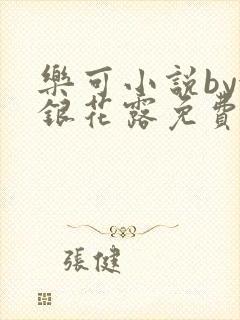 樂可小說by
銀花露免費
張健